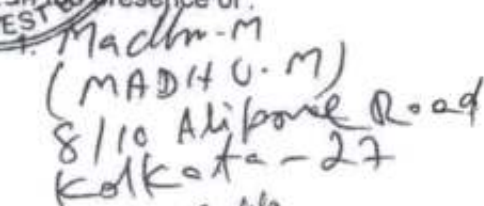 EST presence of :
1. Madhu-M
(MADHU.M)
8/10 Alipore Road
Kolkata-27